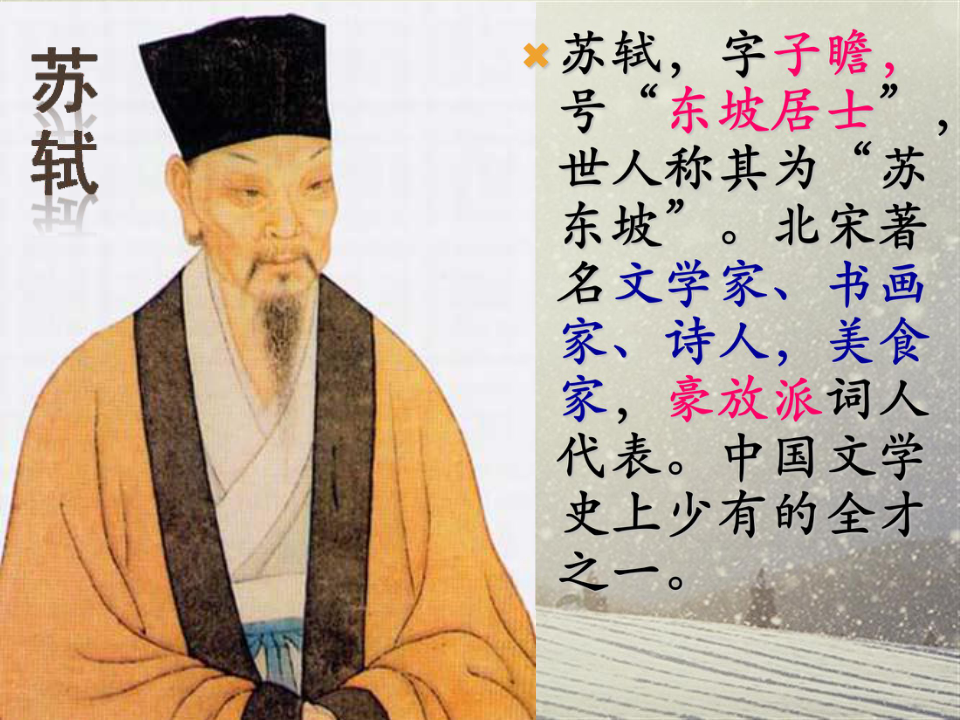 苏轼
苏轼，字子瞻，
号“东坡居士”，
世人称其为“苏
东坡”。北宋著
名文学家、书画
家、诗人，美食
家，豪放派词人
代表。中国文学
史上少有的全才
之一。